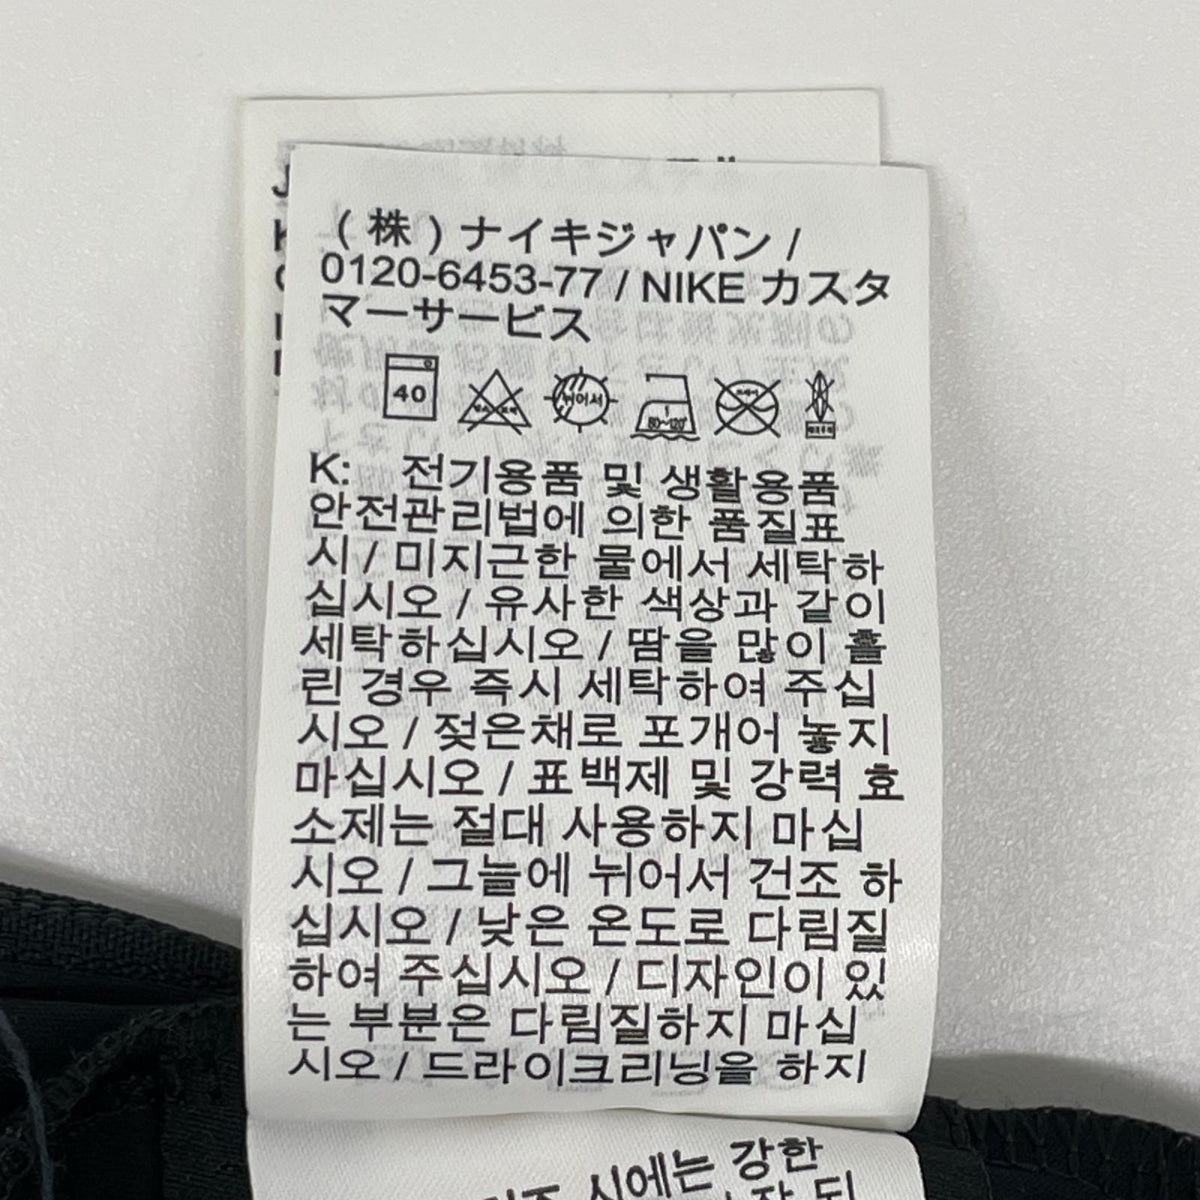 (株)ナイキジャパン /
0120-6453-77 / NIKE カスタ
マーサービス
40
뉘어서
80~120°
K: 전기용품 및 생활용품
안전관리법에 의한 품질표
시 / 미지근한 물에서 세탁하
십시오 / 유사한 색상과 같이
세탁하십시오 / 땀을 많이 흘
린 경우 즉시 세탁하여 주십
시오 / 젖은채로 포개어 놓지
마십시오 / 표백제 및 강력 효
소제는 절대 사용하지 마십
시오 / 그늘에 뉘어서 건조 하
십시오 / 낮은 온도로 다림질
하여 주십시오 / 디자인이 있
는 부분은 다림질하지 마십
시오 / 드라이크리닝을 하지
시에는 강한